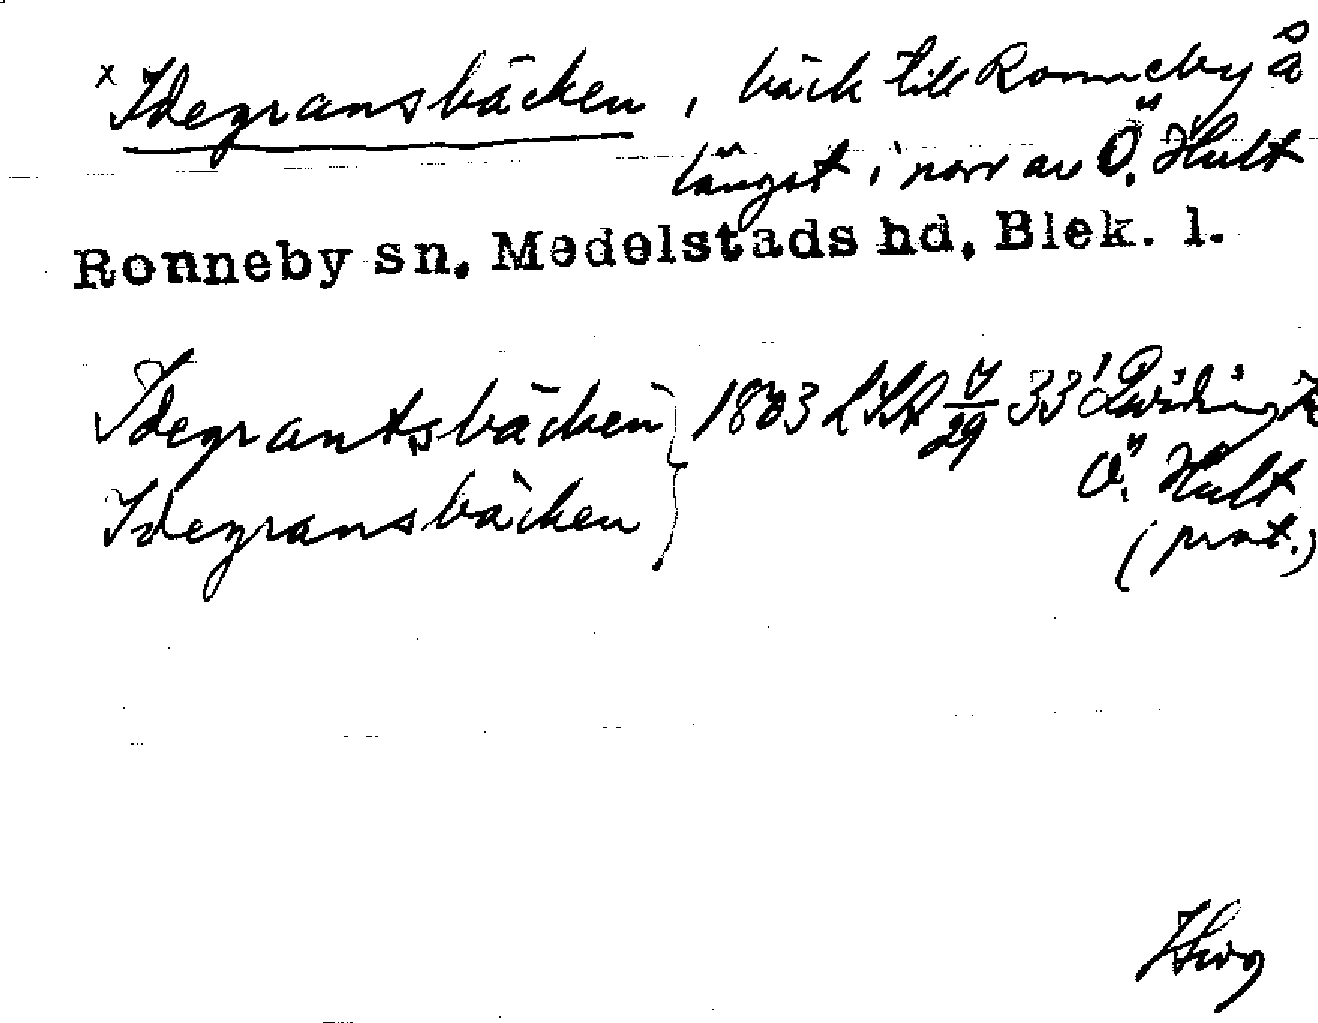 x Idegransbäcken, bäck till Ronneby å
längst i norr av Ö. Hult
Ronneby sn. Medelstads hd. Blek. l.
Idegrantsbäcken } 1803 LSA 7/29 33
Idegransbäcken Ö. Hult
(prot.)